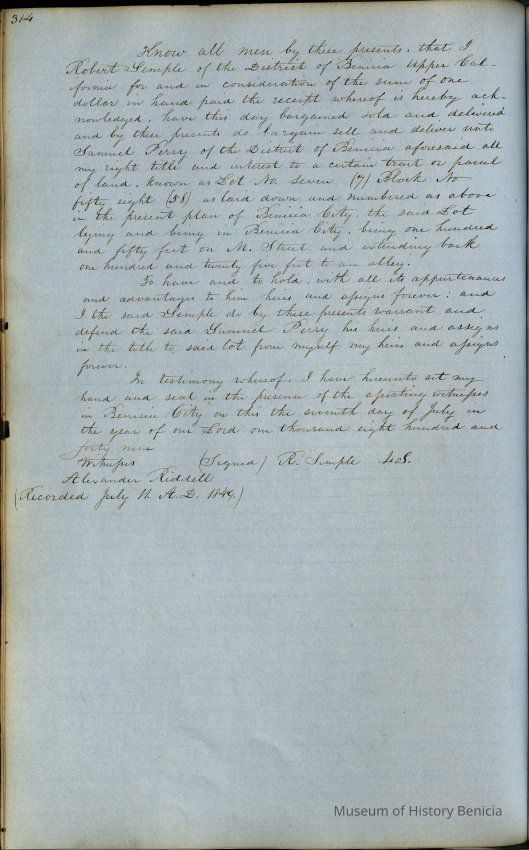 314
Know all men by these presents, that I
Robert Semple of the District of Benicia Upper Cal-
ifornia for and in consideration of the sum of one
dollar in hand paid the receipt whereof is hereby ack-
nowledged, have this day bargained sold and delivered
and by these presents do bargain sell and deliver unto
Samuel Perry of the District of Benicia aforesaid all
my right title and interest to a certain tract or parcel
of land, known as Lot No. seven (7) Block No
fifty eight (58) as laid down and numbered as above
in the present plan of Benicia City, the said Lot
lying and being in Benicia City, being one hundred
and fifty feet on M. Street and extending back
one hundred and twenty five feet to an alley.
To have and to hold, with all its appurtenances
and advantages to him heirs and assigns forever; and
I the said Semple do by these presents warrant and
defend the said Samuel Perry his heirs and assigns
in the title to said lot from myself my heirs and assigns
forever.
In testimony whereof, I have hereunto set my
hand and seal in the presence of the attesting witnesses
in Benicia City on this the seventh day of July in
the year of our Lord one thousand eight hundred and
forty nine
Witness (Signed) R. Semple L.S.
Alexander Riddell
(Recorded July 11. A.D. 1849,)
Museum of History Benicia